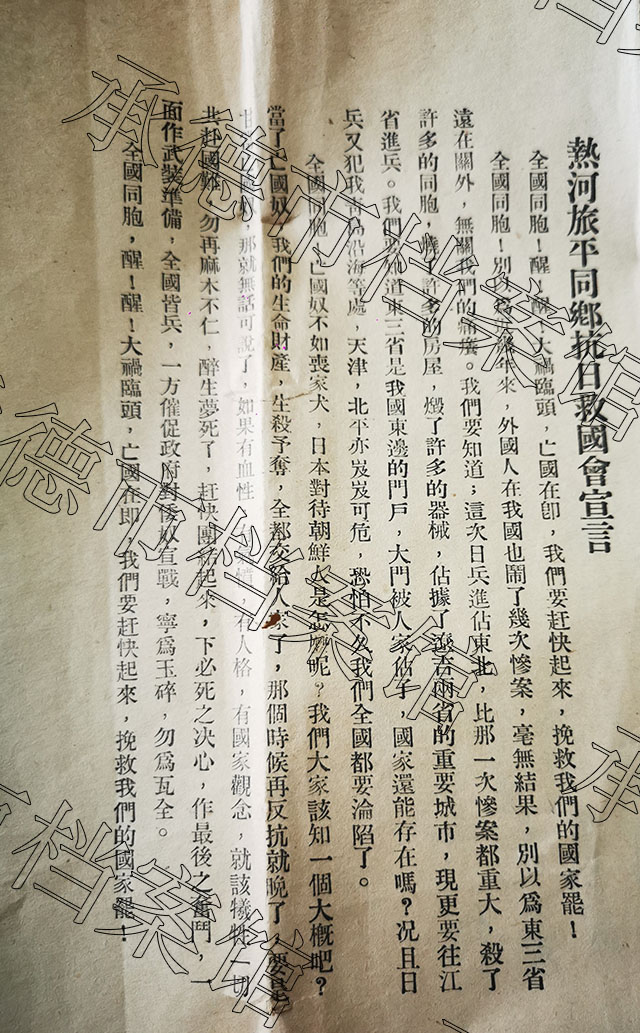 熱河旅平同鄉抗日救國會宣言
全國同胞！醒！醒！大禍臨頭，亡國在卽，我們要赶快起來，挽救我們的國家罷！
全國同胞！別以爲近幾年來，外國人在我國也鬧了幾次慘案，毫無結果，別以爲東三省
遠在關外，無關我們的痛癢。我們要知道；這次日兵進佔東北，比那一次慘案都重大，殺了
許多的同胞，燒了許多的房屋，燬了許多的器械，佔據了遼吉兩省的重要城市，現更要往江
省進兵。我們要知道東三省是我國東邊的門戶，大門被人家佔了，國家還能存在嗎？况且日
兵又犯我青島沿海等處，天津，北平亦岌岌可危，恐怕不久我們全國都要淪陷了。
全國同胞！亡國奴不如喪家犬，日本對待朝鮮人是怎麽呢？我們大家該知一個大槪吧？
當了亡國奴，我們的生命財產，生殺予奪，全都交給人家了，那個時候再反抗就晚了，要是
甘心國奴，那就無話可說了，如果有血性，有人格，有國家觀念，就該犧牲一切
共赴國難，勿再麻木不仁，醉生夢死了，赶快團結起來，下必死之決心，作最後之奮鬥，一
面作武裝準備，全國皆兵，一方催促政府對倭奴宣戰，寧爲玉碎，勿爲瓦全。
全國同胞，醒！醒！大禍臨頭，亡國在卽，我們要赶快起來，挽救我們的國家罷！
承德市档案馆
承德市档案馆
承德市档案馆